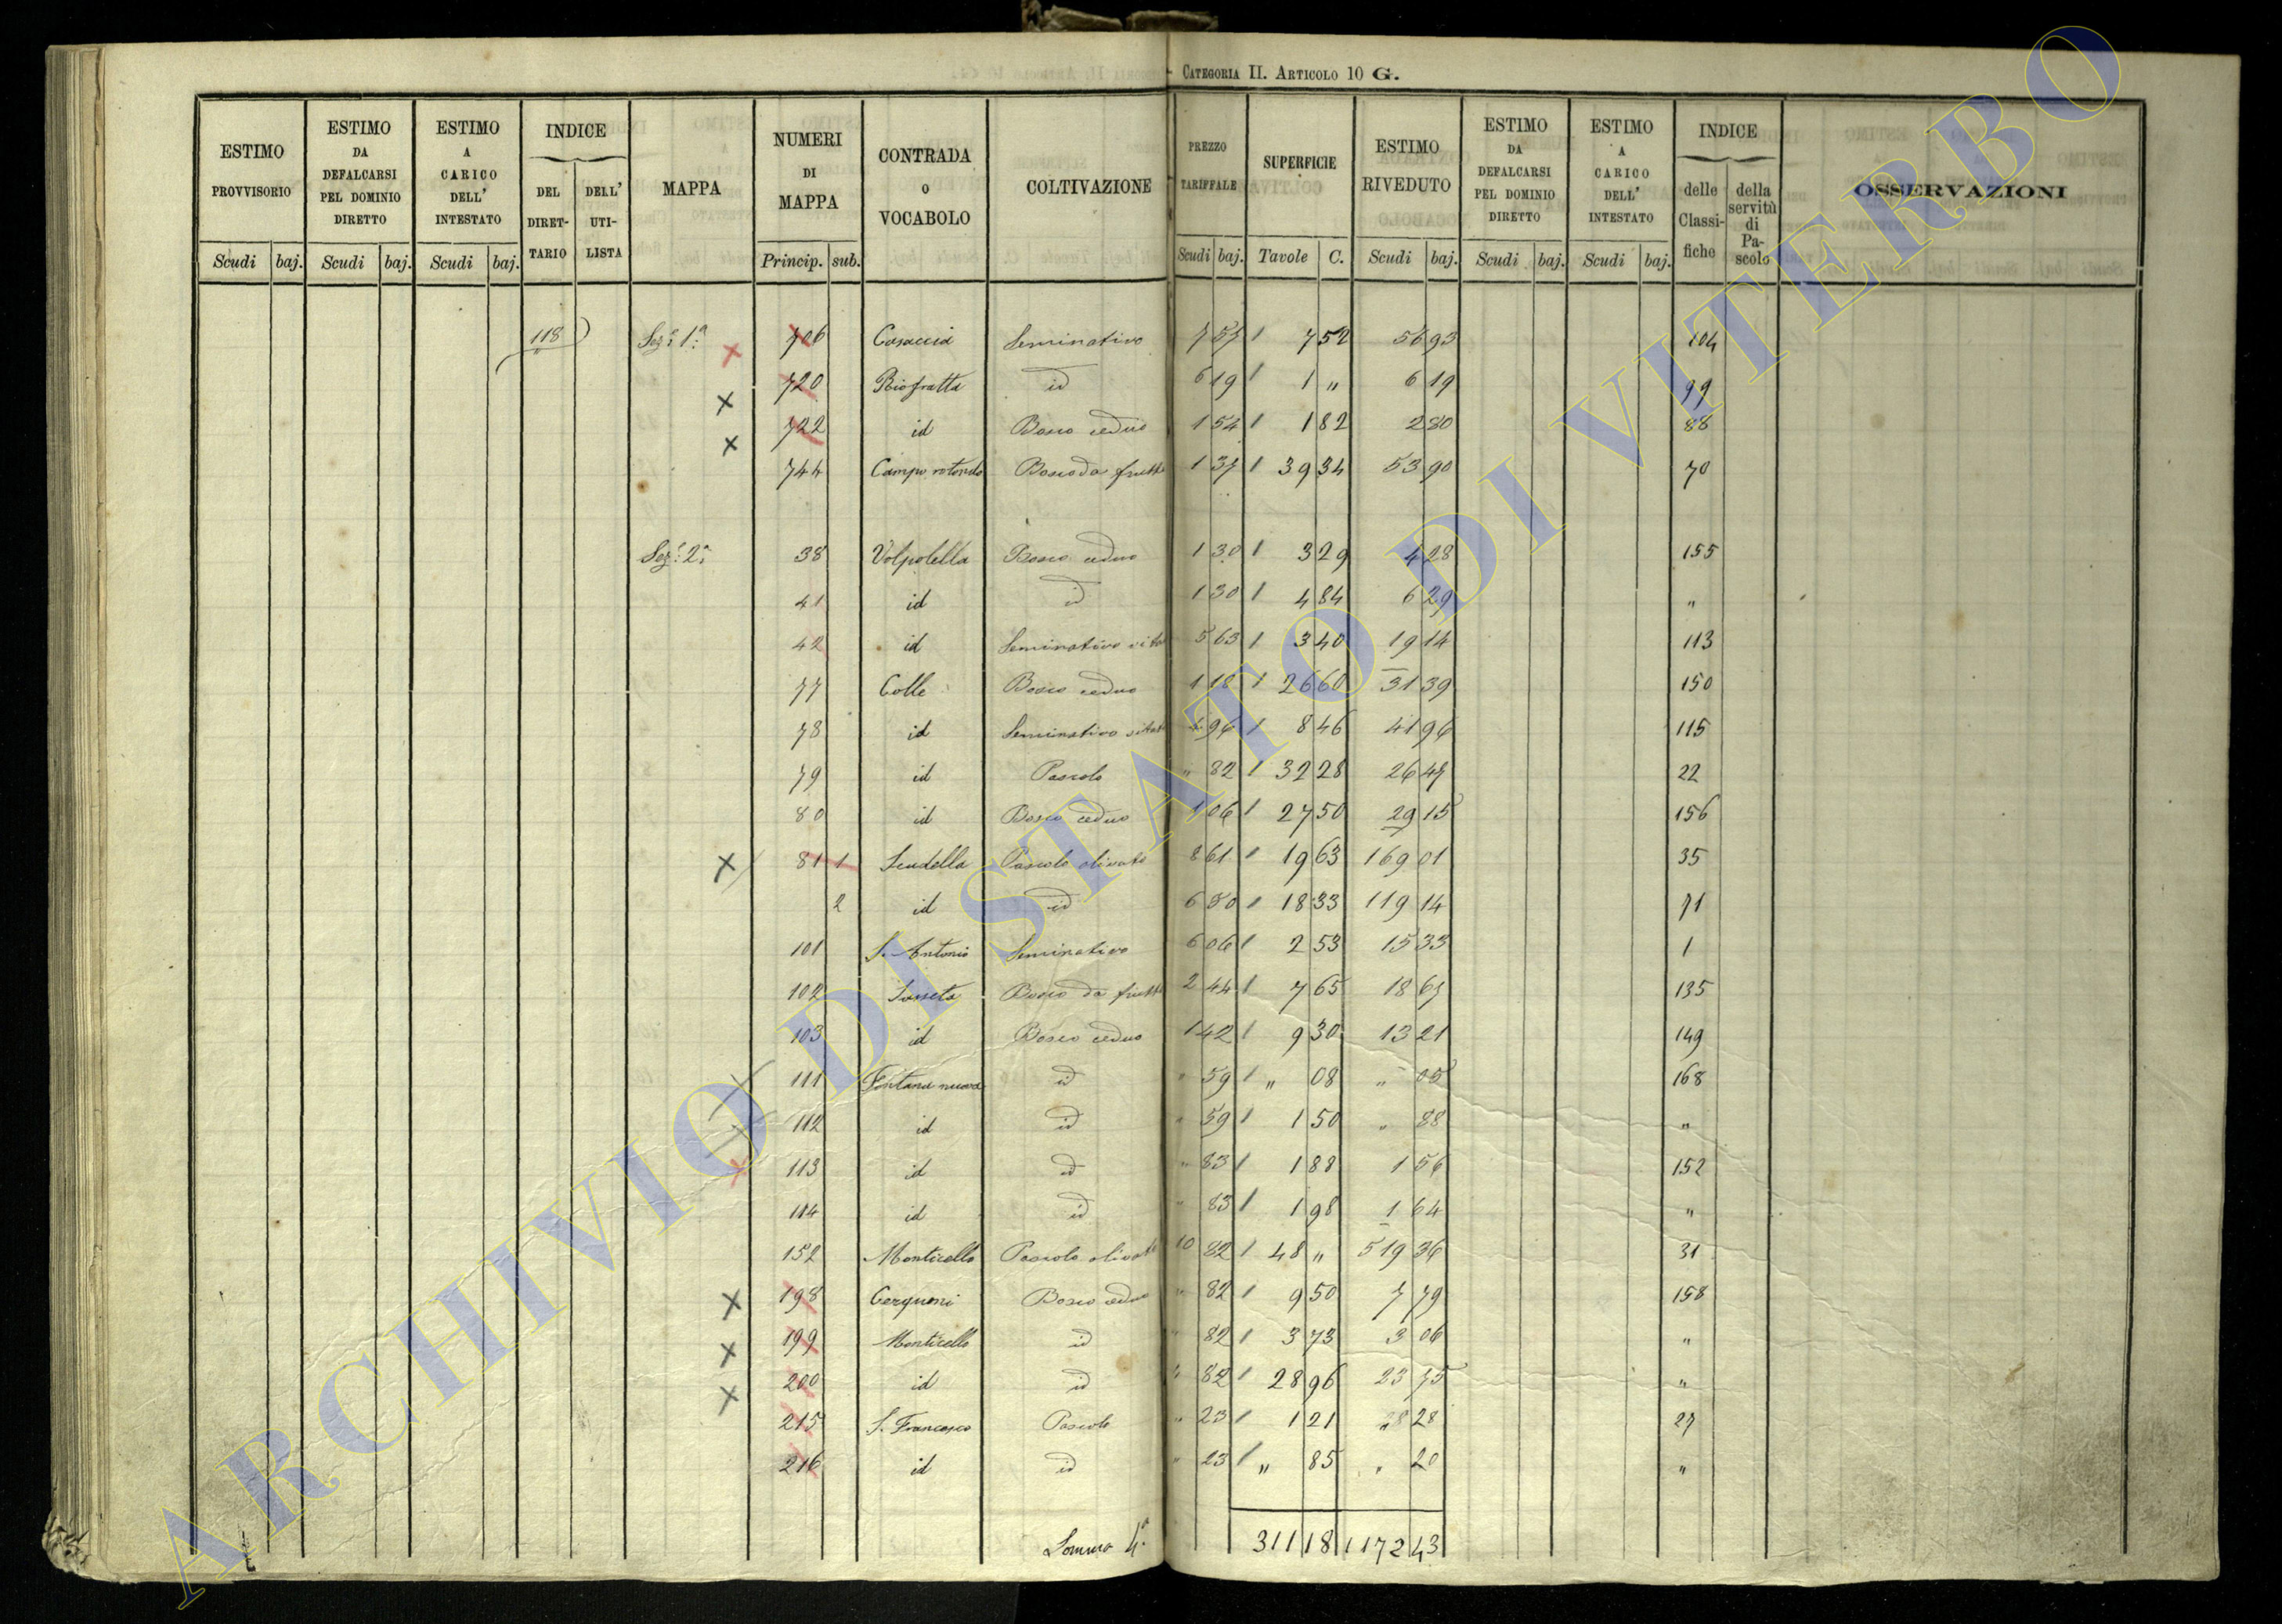 CATEGORIA II. ARTICOLO 10 G.
ESTIMO PROVVISORIO Scudi baj.
ESTIMO DA DEFALCARSI PEL DOMINIO DIRETTO Scudi baj.
ESTIMO A CARICO DELL' INTESTATO Scudi baj.
INDICE DEL DIRETTARIO DELL' UTILISTA
MAPPA
NUMERI DI MAPPA Princip. sub.
CONTRADA O VOCABOLO
COLTIVAZIONE
PREZZO TARIFFALE Scudi baj.
SUPERFICIE Tavole C.
ESTIMO RIVEDUTO Scudi baj.
ESTIMO DA DEFALCARSI PEL DOMINIO DIRETTO Scudi baj.
ESTIMO A CARICO DELL' INTESTATO Scudi baj.
INDICE delle Classifiche della servitù di Pascolo
OSSERVAZIONI
118 Sez.e 1a 706 Casaccia Seminativo 7 57 7 52 56 93 104
720 Riofratta id 6 19 1 " 6 19 99
722 id Bosco ceduo 1 54 1 82 2 80 88
744 Campo rotondo Bosco da frutto 1 37 39 34 53 90 70
Sez.e 2a 38 Volpolella Bosco ceduo 1 30 3 29 4 28 155
41 id id 1 30 4 84 6 29 "
42 id Seminativo vitato 5 63 3 40 19 14 113
77 Colle Bosco ceduo 1 18 26 60 31 39 150
78 id Seminativo vitato 4 96 8 46 41 96 115
79 id Pascolo " 82 32 28 26 47 22
80 id Bosco ceduo 1 06 27 50 29 15 156
81 1 Scudella Pascolo olivato 8 61 19 63 169 01 35
2 id id 6 50 18 33 119 14 71
101 S. Antonio Seminativo 6 06 2 53 15 33 1
102 Sasseta Bosco da frutto 2 44 7 65 18 67 135
103 id Bosco ceduo 1 42 9 30 13 21 149
111 Fontana nuova id " 59 " 08 " 05 168
112 id id " 59 1 50 " 88 "
113 id id " 83 1 88 1 56 152
114 id id " 83 1 98 1 64 "
152 Monticello Pascolo olivato 10 82 48 " 519 36 31
198 Cerquoni Bosco ceduo " 82 9 50 7 79 158
199 Monticello id " 82 3 73 3 06 "
200 id id " 82 28 96 23 75 "
215 S. Francesco Pascolo " 23 1 21 " 28 27
216 id id " 23 " 85 " 20 "
Somma 4.a 311 18 1172 43
ARCHIVIO DI STATO DI VITERBO